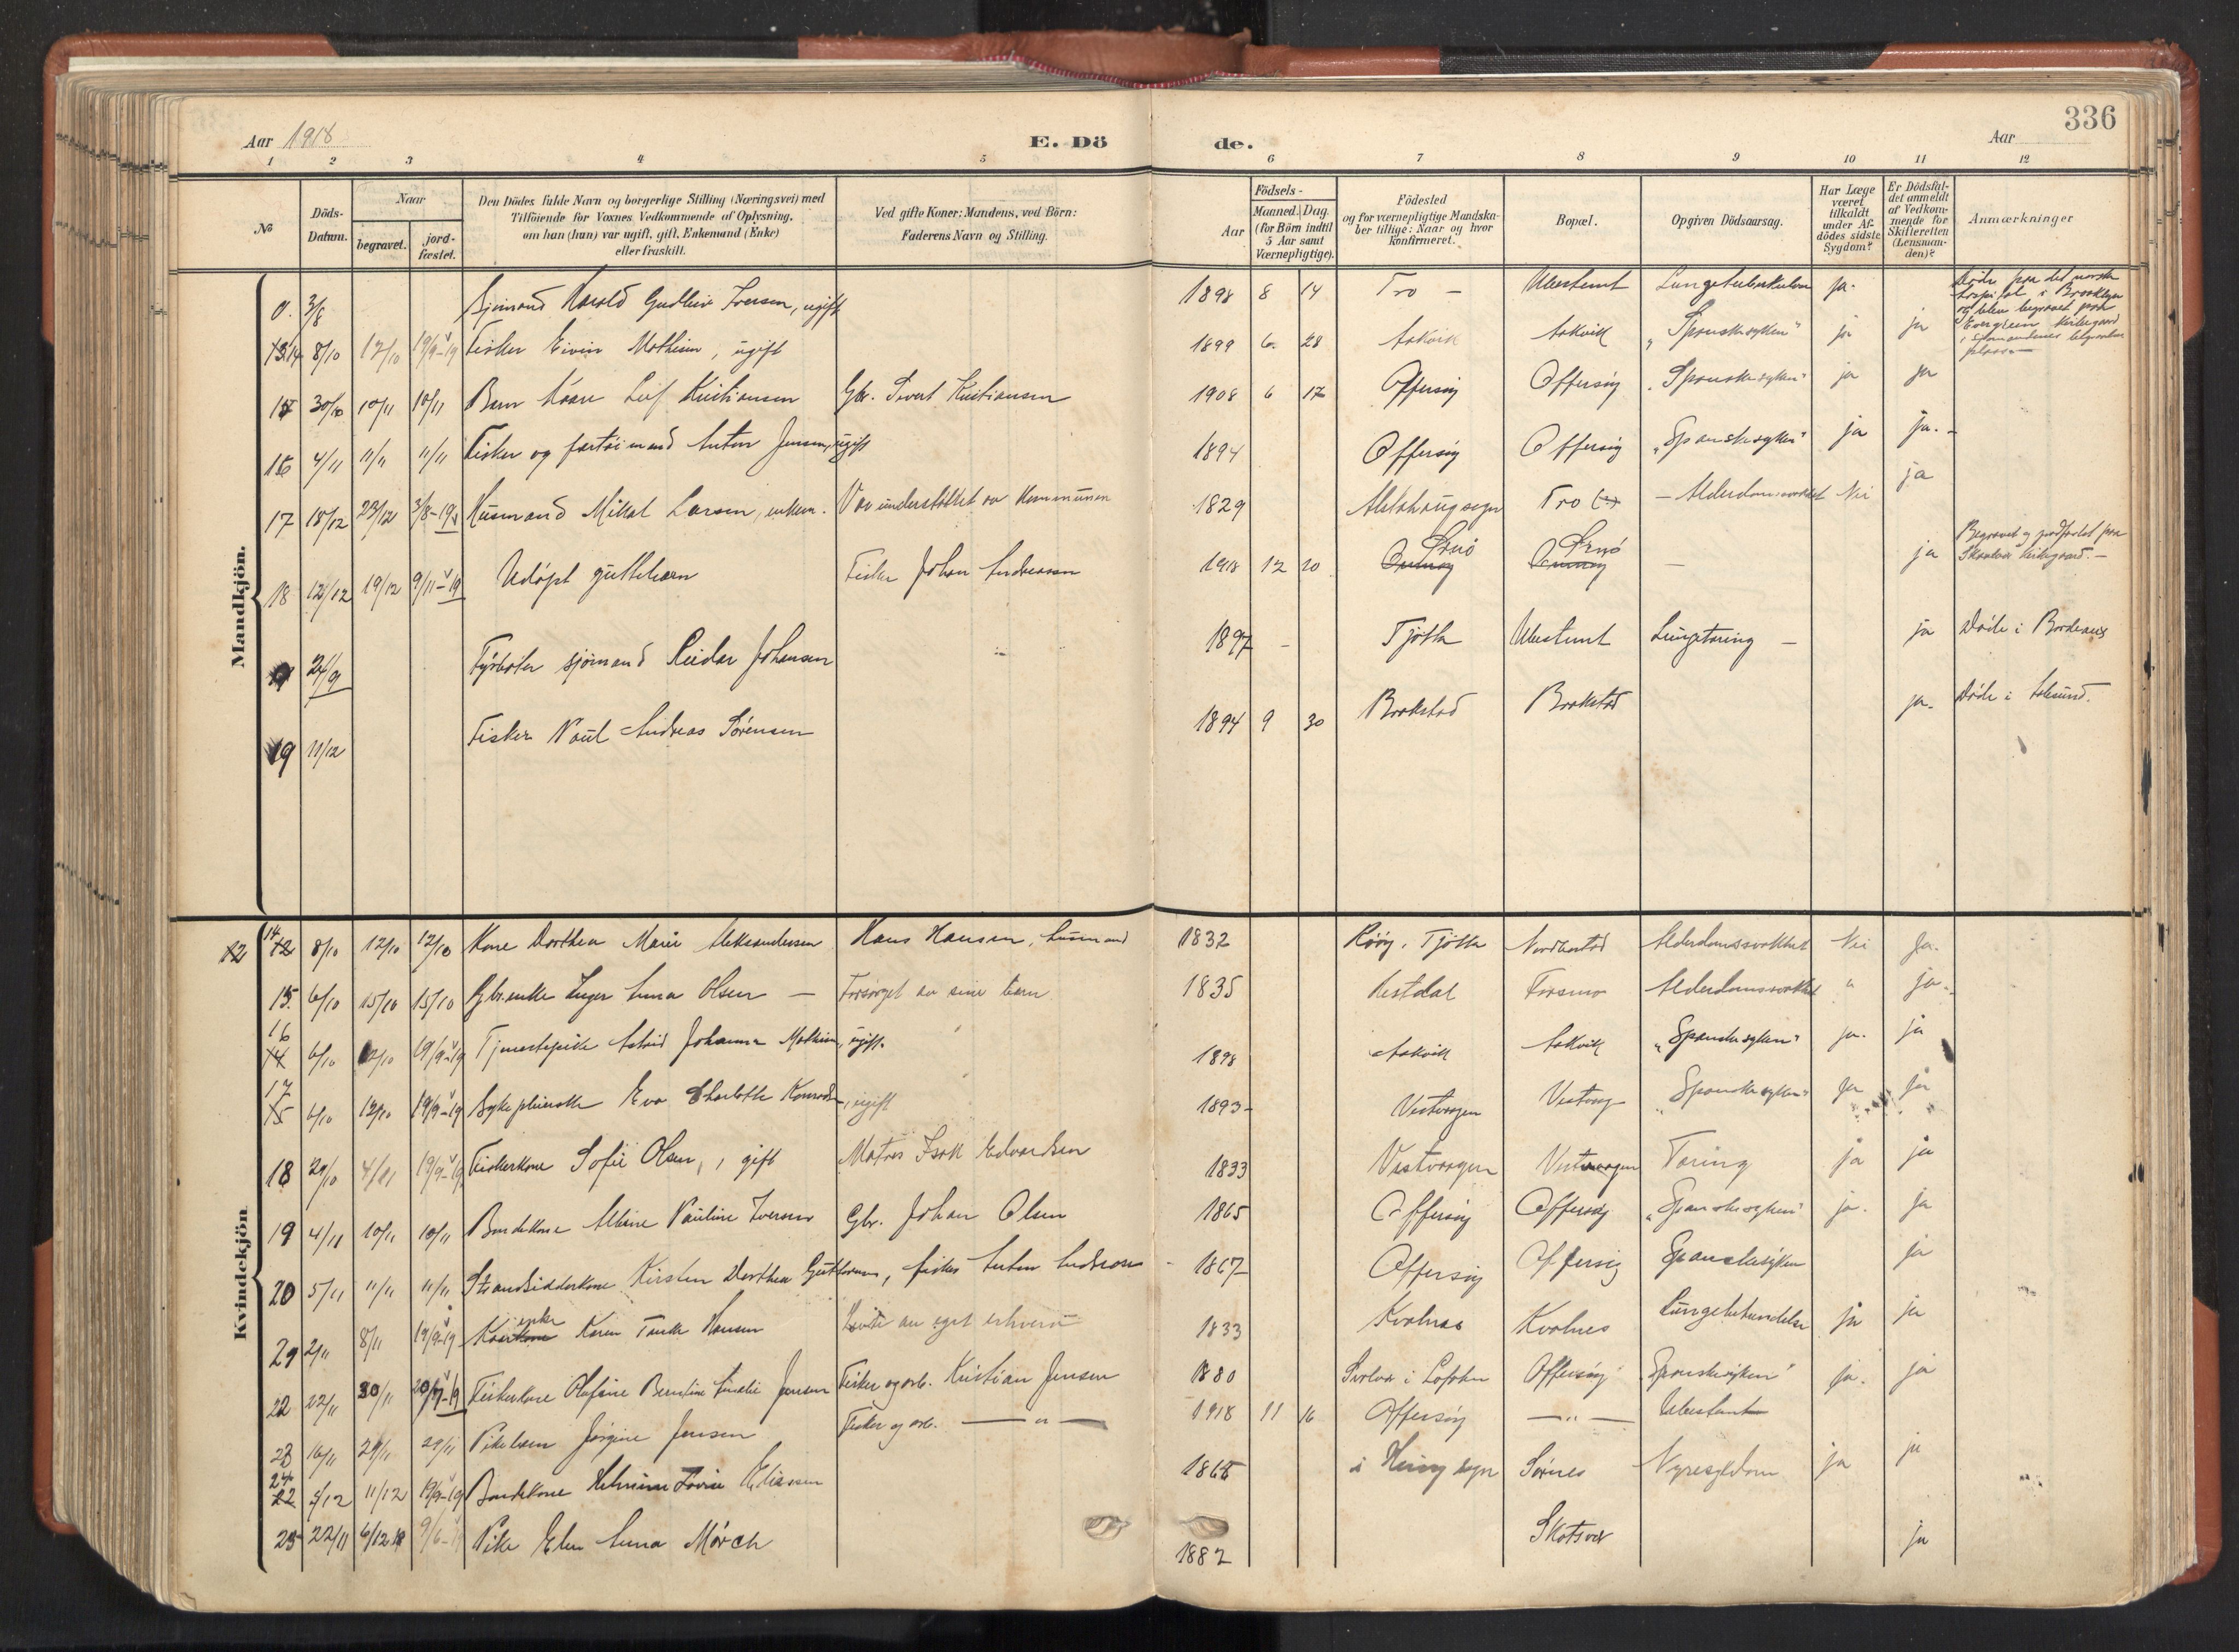 336
Aar 1918 E. Döde. Aar
1 2 3 4 5 6 7 8 9 10 11 12
No
Döds-Datum.
Naar
begravet.
jord-fæstet.
Den Dödes fulde Navn og borgerlige Stilling (Næringsvei) med
Tilföiende for Voxnes Vedkommende af Oplysning,
om han (hun) var ugift, gift, Enkemand (Enke)
eller fraskilt.
Ved gifte Koner: Mandens, ved Börn:
Faderens Navn og Stilling.
Födsels-
Aar
Maaned. Dag
(for Börn indtil
5 Aar samt
Værnepligtige).
Födested
og for værnepligtige Mandska-
ber tillige: Naar og hvor
konfirmeret.
Bopæl.
Opgiven Dödsaarsag.
Har Læge
været
tilkaldt
under Af-
dödes sidste
Sygdom?
Er Dödsfal-
det anmeldt
af Vedkom-
mende for
Skifteretten
(Lensman-
den)?
Anmærkninger
Mandkjön.
0. 3/8 Sjømand Harald Iversen, ugift 1898 8 14 Tro - Ubestemt Lungetuberkulose ja. Døde paa det norske
hospital i Brooklyn
og blev begravet paa
Evergreen Kirkegaard
14 8/10 12/10 19/9-19 Fisker Eivin Mathisen, ugift 1899 6 28 Aakvik Aakvik "Spanskesyken" ja ja
15 30/10 10/11 10/11 Barn Kaare Leif Kristiansen Gbr. Sivert Kristiansen 1908 6 17 Offersøy Offersøy "Spanskesyken" ja ja
16 4/11 11/11 11/11 Fisker og fartøimand Anton Jensen, ugift 1894 Offersøy Offersøy "Spanskesyken" ja ja.-
17 18/12 23/12 3/8-19 Husmand Mikal Larsen, enkem. Var understøttet av Kommunen 1829 Alstahaug sogn Tro - Alderdomssvakhet Nei ja
18 12/12 19/12 9/11-19 Udøpt guttebarn Fisker Johan Andreassen 1918 12 10 - ja Begravet og jordfæstet paa
kirkegaard.-
24/9 Fyrbøter sjømand Reidar Johansen 1897 - Tjøtta Ubestemt Lungetæring - ja Døde i Bordeaux
19 11/12 Fisker Paul Andreas Sørensen 1894 9 30 Brakstad Brakstad ja. Døde i Aalesund.
Kvindekjön
12 14 12 8/10 12/10 12/10 Kone Dorthea Marie Aleksandersen Hans Hansen, husmand 1832 Røøy, Tjøtta Alderdomssvakhet Nei Ja.
15. 6/10 15/10 15/10 Gbr.enke Inger Anna Olsen - Forsørget av sine barn 1835 Forsmo Alderdomssvakhet " ja.-
16 14 6/10 12/10 19/9-19 Tjenestepike Astrid Johanna Mathisen, ugift. 1898 Aakvik Aakvik "Spanskesyken" ja. ja
17 15 6/10 12/10 19/9-19 Sykepleierske Eva Charlotte Konradsen, ugift 1893- Vestvaagen Vestvaag "Spanskesyken" ja ja
18 29/10 4/11 19/9-19 Fiskerkone Sofie Olsen, gift Matros Isak Edvardsen 1833 Vestvaagen Vestvaagen Tæring ja ja
19 4/11 10/11 10/11 Bondekone Albine Pauline Iversen Gbr. Johan Olsen 1865 Offersøy Offersøy "Spanskesyken" ja. ja
20 5/11 11/11 11/11 Strandsidderkone Kirsten Dorthea Guttormsen, fisker Anton Andreassen 1867 Offersøy Offersøy Spanskesyken ja
21 2/11 8/11 19/9-19 enke Karen Hansen Levte av eget erhverv 1833 Kvalnes Kvalnes Lungebetændelse ja ja
22 22/11 30/11 Fiskerkone Olufine Amalie Jensen Fisker og arb. Kristian Jensen 1880 Svolvær i Lofoten Offersøy Spanskesyken" ja. ja
23 16/11 29/11 29/11 Pikebarn Jørgine Jensen Fisker og arb. —"— 1918 11 16 Offersøy —"— Ubestemt
24 22 5/12 11/12 19/9-19 Bondekone Lovise Eliassen 1868 i Herøy sogn Sørnes Nyresykdom ja ja
25 22/11 6/12 18 9/6-19 Pike Elen Anna Mørch 1882 Skotsvær ja